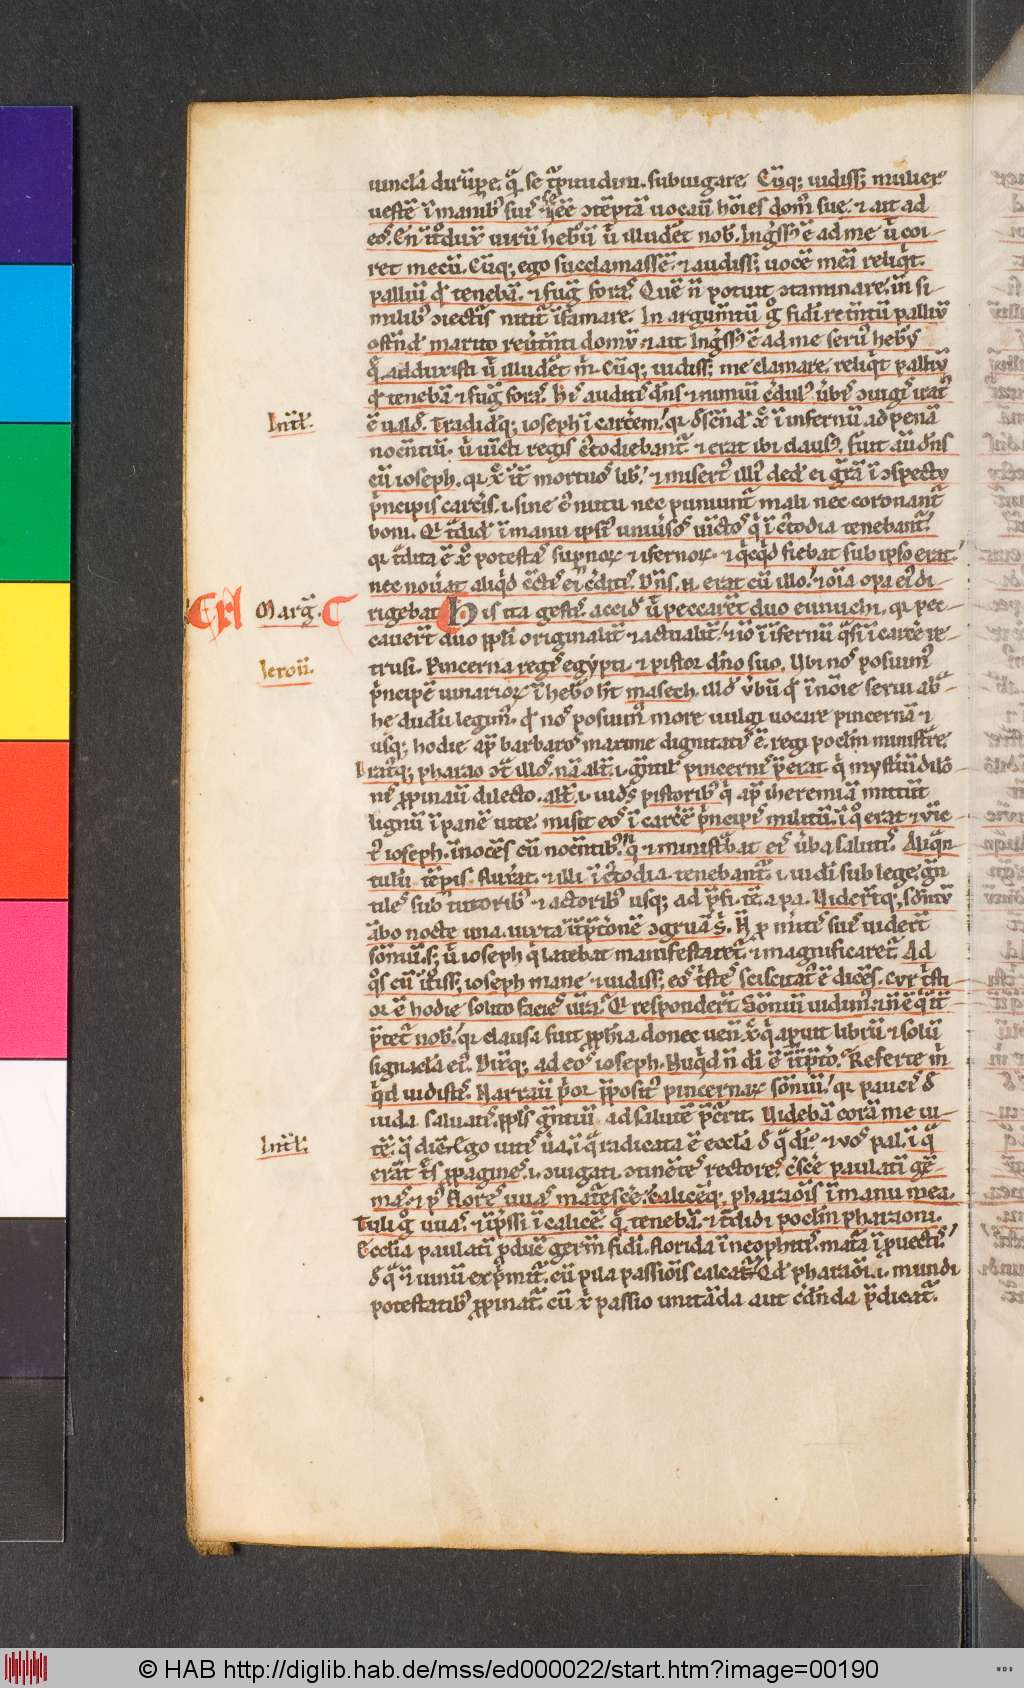 uincla dirupe. q̄ se t̄pitudini. subiugare. Cūq; uidiss; mulier
uestē ī manib' suis ⁊ se eē ɔtēptā uocauit hōies dom' sue. ⁊ ait ad
eos. En ītrodux uirū hebreū ut illudet nob. Ingss' ē ad me ut coi-
ret mecū. Cūq; ego succlamassē. ⁊ audiss; uocē meā reliqt.
palliū qd tenebā. ⁊ fugit foras. Quē n̄ potuit ɔtaminare. in si-
milib' ɔiectis nitit īfamare. In argumtū g° fidei retentū palliū
ostend marito reuertenti domū. ⁊ ait Ingss' ē ad me seru' hebs
q. adduxisti ut illudet m. Cūq; uidiss; me clamare. reliqt palliū
qd tenebā ⁊ fugit foras. His auditis dns ⁊ nimiū credul' ubis ɔiugis irat'
Intl.
ē uald. Tradidq; ioseph ī carcem. qr descend x ī infernū ad penā
nocentiū. ubi uīcti regis custodiebant. ⁊ erat ibi claus'. Fuit aut dns
cū ioseph. qr x int mortuos lib. ⁊ misert' illi' ded ei grām ī ɔspectu
pncipis carcis. i. sine cui' nutu nec puniunt mali nec coronant
boni. Qi tdid ī manu ipsi' uniuso' uīcto' qi ī custodia tenebant.
qr tdita ē x potestas supnor ⁊ īfernor. ⁊ qcqd fiebat sub ipso erat.
nec nouat aliqd cūctis ei creditis. Dns. n. erat cū illo. ⁊ oīa opa ei' di-
Marg.
rigebat. His ita gestis. accid ut peccaret duo eunuchi. qr pec-
cauert duo ppli originalit ⁊ actualit. ⁊ iō ī īfernū qsi ī carce re-
Ieron.
trusi. Pincerna regis egypti. ⁊ pistor dno suo. Ubi nos posuim'
pncipē uinarior ī hebo ht masech. illd ubū qd ī noīe serui ab-
he dudū legim'. qd nos posuim' more uulgi uocare pincernā ⁊
usq; hodie apd barbaros maxime dignitatis ē. regi poclm ministre.
Iratq; pharao ɔt illos. nā alt. i. gentil' pincernis perat q mysteriū dilō-
nis ppinauit dilecto. alt. i. iudes pistorib' q apd iheremiā mittunt
lignū ī panē uite. misit eos ī carcē pncipis militū. ī q erat ⁊ uīc-
t' ioseph. īnocēs cū nocentib'. q ⁊ ministbat eis uba salutis. Aliqn-
tulū tēpis fluxat. ⁊ illi ī custodia tenebant. i. iudi sub lege. gen-
tiles sub tutorib' ⁊ actorib' usq; ad pfi. tē. a pa. Uidertq; sōniū
ābo nocte una. iuxta īterptonē ɔgruā s'. N pro meritis suis uidert
sōniū. s; ut ioseph q latebat manifestaret. ⁊ magnificaret. Ad
qs cū introiss; ioseph mane ⁊ uidiss; eos tstes. sciscitat' ē dicēs. Cur tsti-
or ē hodie solito facies ura. Qi respondert. Sōniū uidim'. ⁊ n ē q int-
ptet nob. qr clausa fuit pphia donec uen x q aput librū ⁊ solu
signacla ei'. Dixq; ad eos ioseph. Nuqd n di ē interpto. Referte m
qd uidistis. Narrauit pior pposit' pincernar sōniū. qr pauci d
iuda saluati. ppls gentiū ad salutē pcurrit. Uidebā corā me ui-
Intl.
tē. q dicet. Ego uitis ua. ī q radicata ē eccla d q dr. ⁊ uos pal. ī q
erāt ts ppagines. i. ɔiugati. ɔtinētes rectores. cscē paulati ge-
mas. ⁊ p' flores uuas matescē. calicēq; pharaois ī manu mea.
Tuli g° uuas. ⁊ expssi ī calicē q tenebā. ⁊ tdidi poclm pharaoni.
Ecclia paulati pduc germ fidei. florida ī neophitis. mata ī puectis.
d q ⁊ uinū expmit. cū pila passiois calcat. Qd pharaoi. i. mundi
potestatib' ppinat. cū x passio imitāda aut cdnda pdicat.
© HAB http://diglib.hab.de/mss/ed000022/start.htm?image=00190